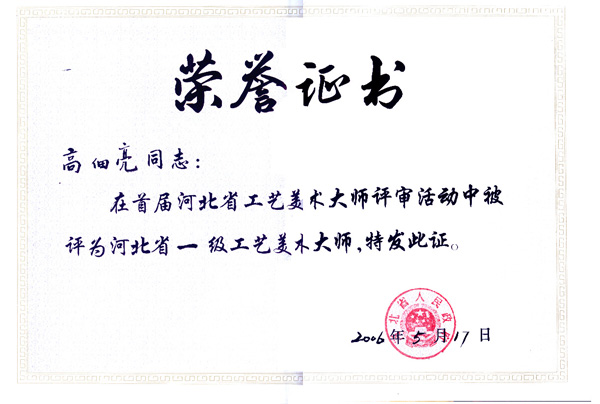 荣誉证书
高佃亮同志：
在首届河北省工艺美术大师评审活动中被
评为河北省一级工艺美术大师，特发此证。
北省人民政
2006年5月17日